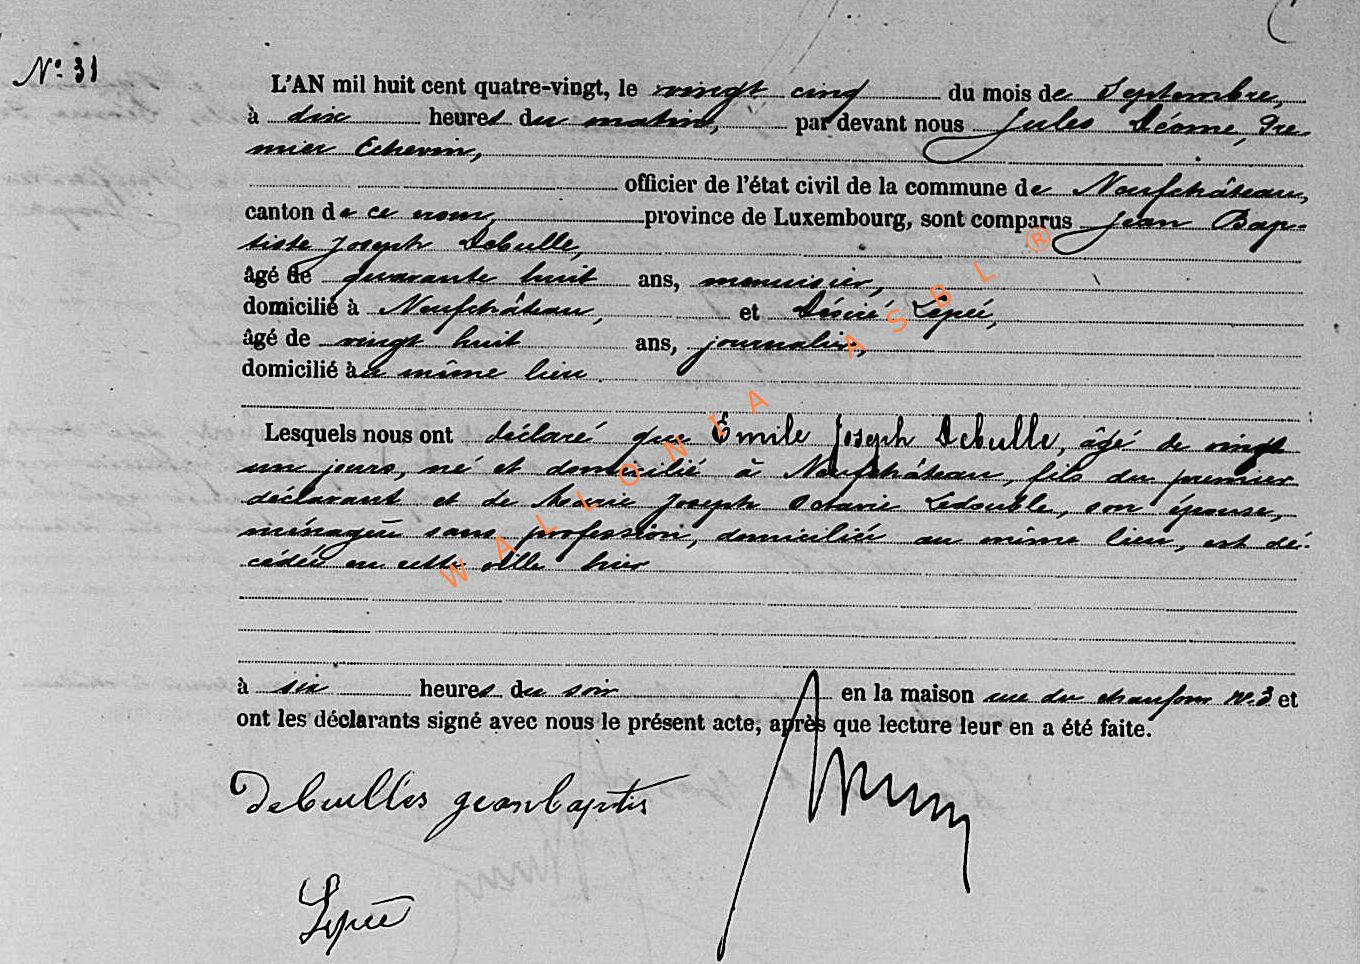 N° 31
L'AN mil huit cent quatre-vingt, le vingt cinq du mois de Septembre,
à dix heures du matin, par devant nous Jules Déome, Pre-
mier Echevin,
officier de l'état civil de la commune de Neufchâteau,
canton de ce nom, province de Luxembourg, sont comparus Jean Bap-
tiste Joseph Debulle,
âgé de quarante huit ans, menuisier,
domicilié à Neufchâteau, et Désiré Lepée,
âgé de vingt huit ans, journalier,
domicilié à u même lieu
Lesquels nous ont déclaré que Emile Joseph Debulle, âgé de vingt
un jours, né et domicilié à Neufchâteau, fils du premier
déclarant et de Marie Joseph Octavie Ledouble, son épouse,
ménagère sans profession, domiciliée au même lieu, est dé-
cédée en cette ville hier
à six heures du soir en la maison rue du chaufour N.3 et
ont les déclarants signé avec nous le présent acte, après que lecture leur en a été faite.
Debulles geanbaptis
Lepée
WALLONIA ASBL ®